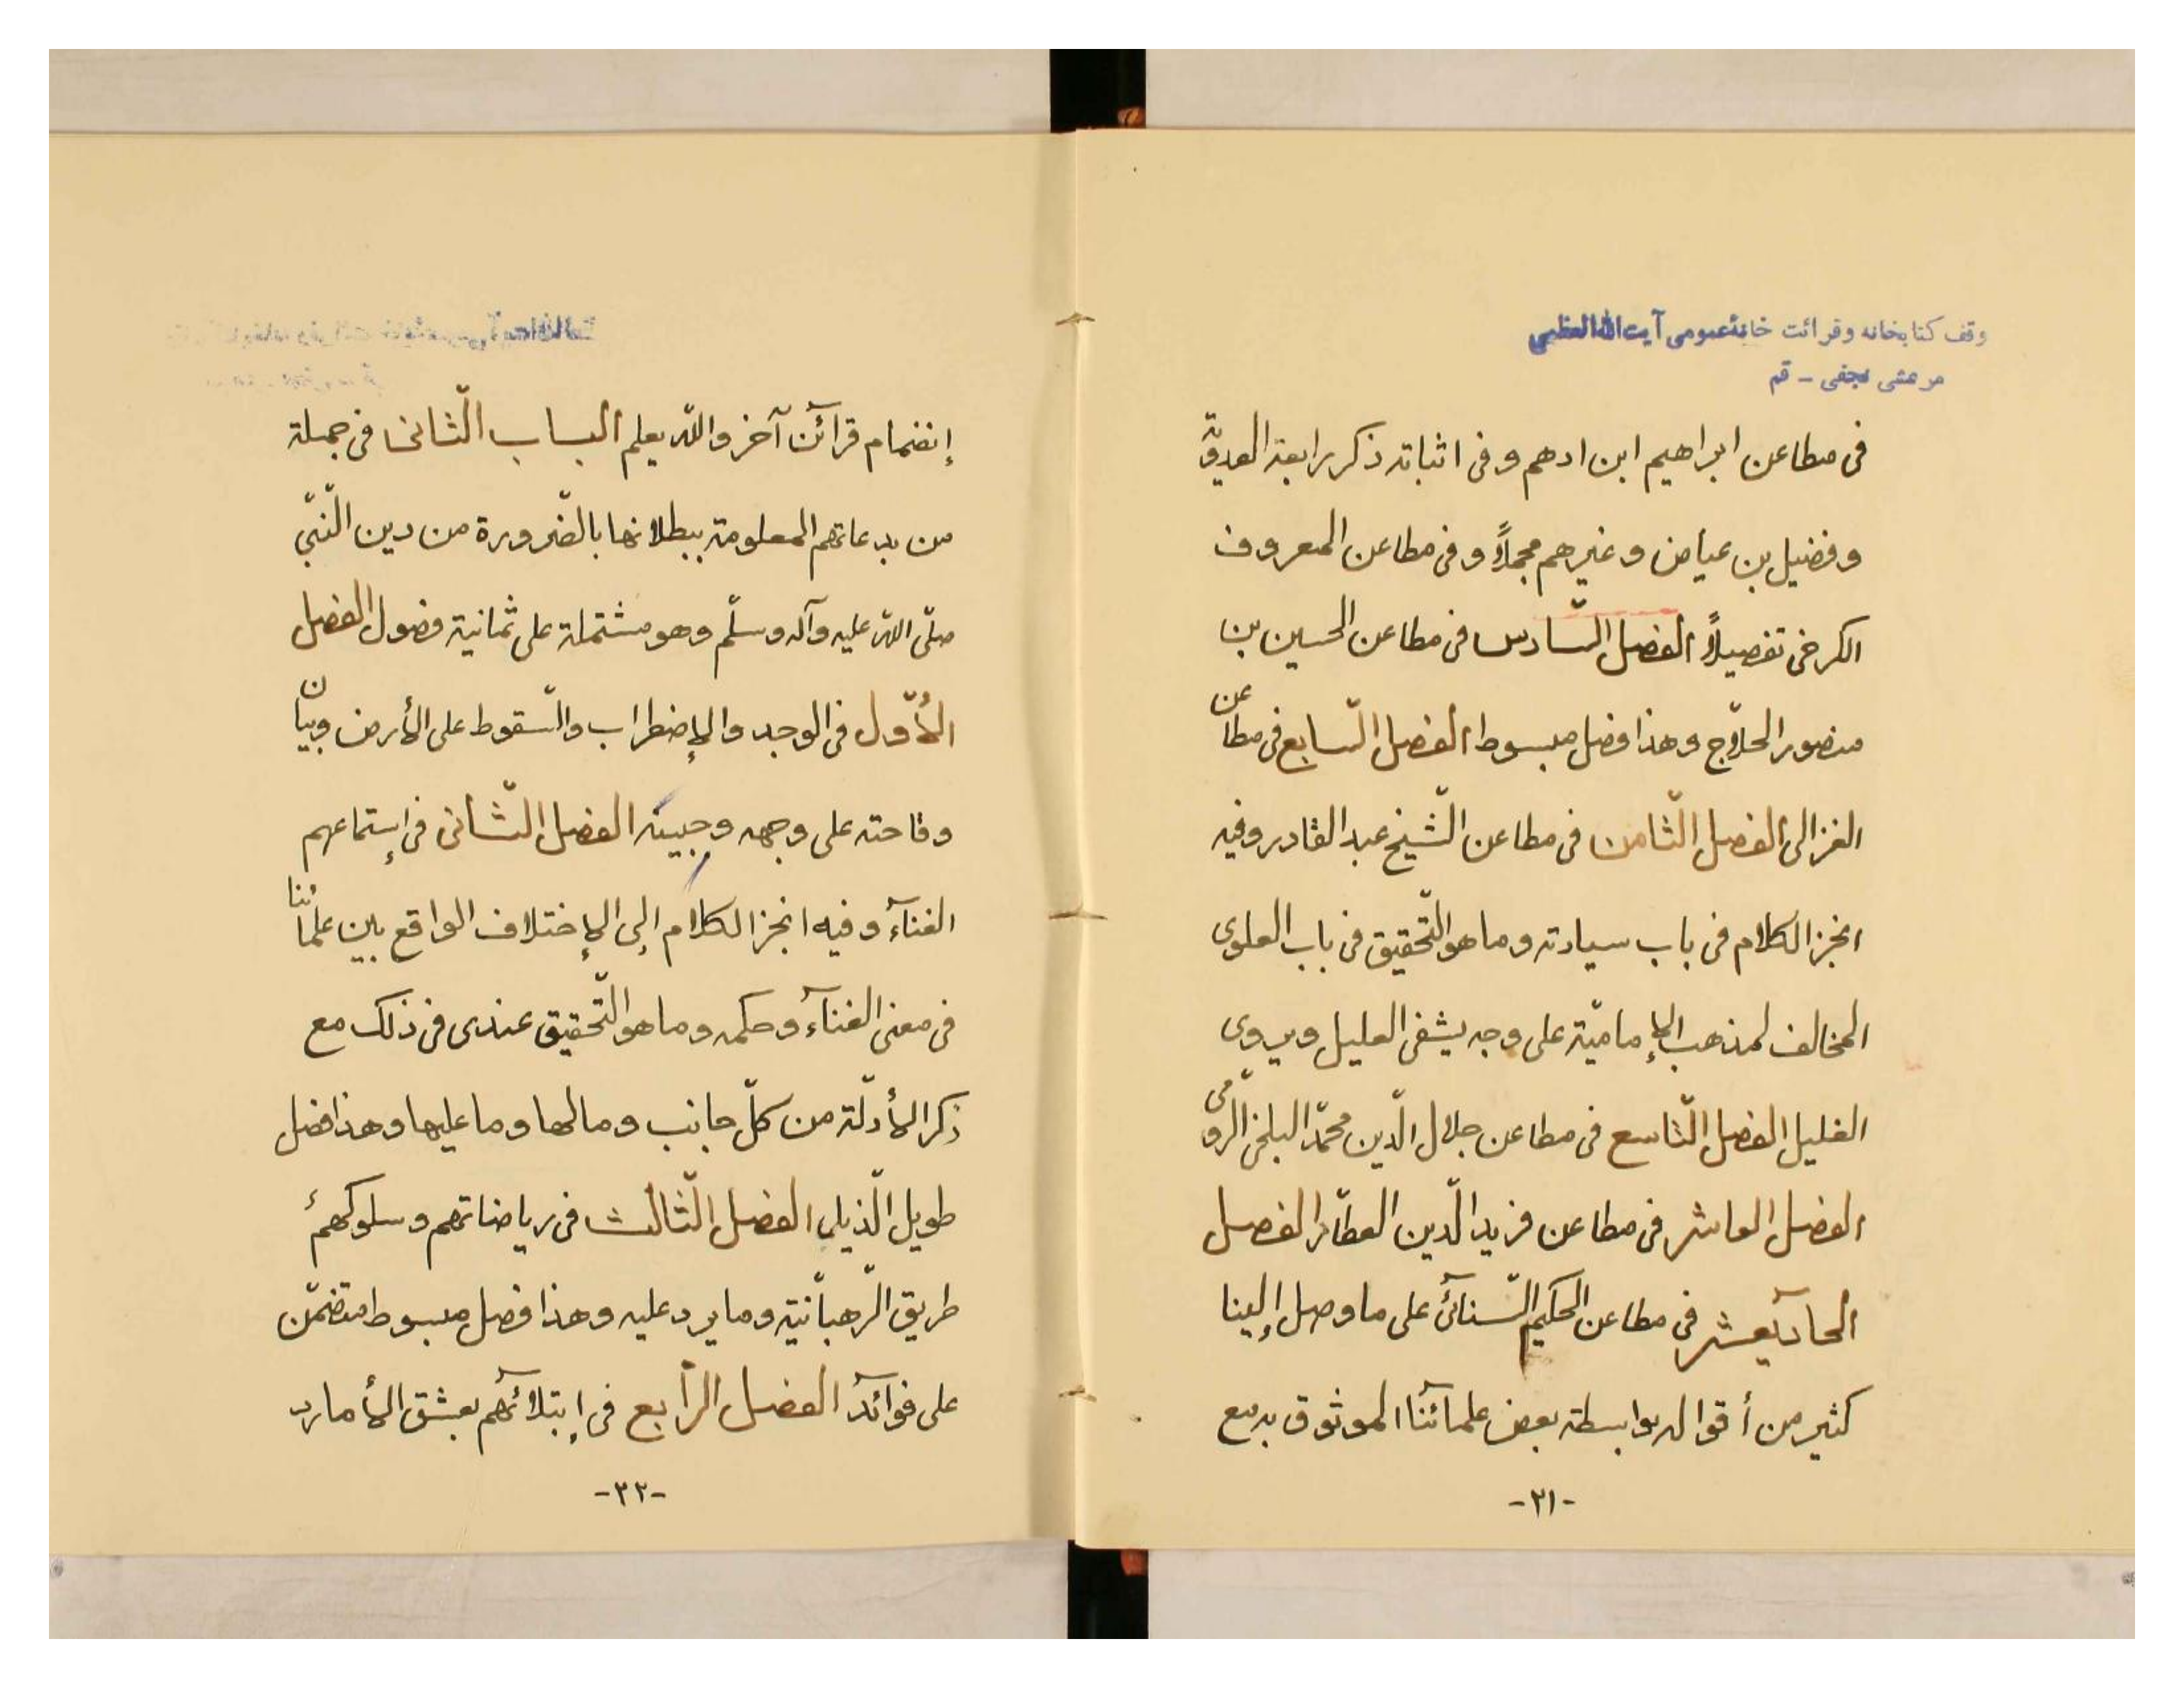 وقف كتابخانه وقرائت خانهٔ عمومی آیت الله العظمی
مرعشی نجفی - قم
فى مطاعن ابراهيم ابن ادهم وفى اثباته ذكر رابعة العدويّة
وفضيل بن عياض وغيرهم مجملاً وفى مطاعن المعروف
الكرخى تفصيلاً الفصل السّادس فى مطاعن الحسين بن
منصور الحلّاج وهذا فصل مبسوط الفصل السّابع فى مطاعن
الغزالى الفصل الثّامن فى مطاعن الشّيخ عبد القادر وفيه
انجز الكلام فى باب سيادته وما هو التّحقيق فى باب العلوى
المخالف لمذهب الإماميّة على وجه يشفى العليل ويروى
الغليل الفصل التّاسع فى مطاعن جلال الدّين محمّد البلخى الرّومّى
الفصل العاشر فى مطاعن فريد الدّين العطّار الفصل
الحاديعشر فى مطاعن الحكيم السّنائى على ما وصل إلينا
كثير من أقواله بواسطة بعض علمائنا الموثوق به مع
-٢١-
إنضمام قرائن آخر والله يعلم الباب الثّانى فى جملة
من بدعاتهم المعلومة ببطلانها بالضّرورة من دين النّبّى
صلّى الله عليه وآله وسلّم وهو مشتملة على ثمانية فصول الفصل
الأوّل فى الوجد والإضطراب والسّقوط على الأرض وبيان
وقاحته على وجهه وجبينه الفصل الثّانى فى إستماعهم
الغنآء وفيه انجز الكلام إلى الإختلاف الواقع بين علمائنا
فى معنى الغنآء وحكمه وما هو التّحقيق عندى فى ذلك مع
ذكر الأدلّة من كلّ جانب وما لها وما عليها وهذا فصل
طويل الذّيل الفصل الثّالث فى رياضاتهم وسلوكهم
طريق الرّهبانّية وما يرد عليه وهذا فصل مبسوط متضمّن
على فوائد الفصل الرّابع فى إبتلائهم بعشق الأمارد
-٢٢-